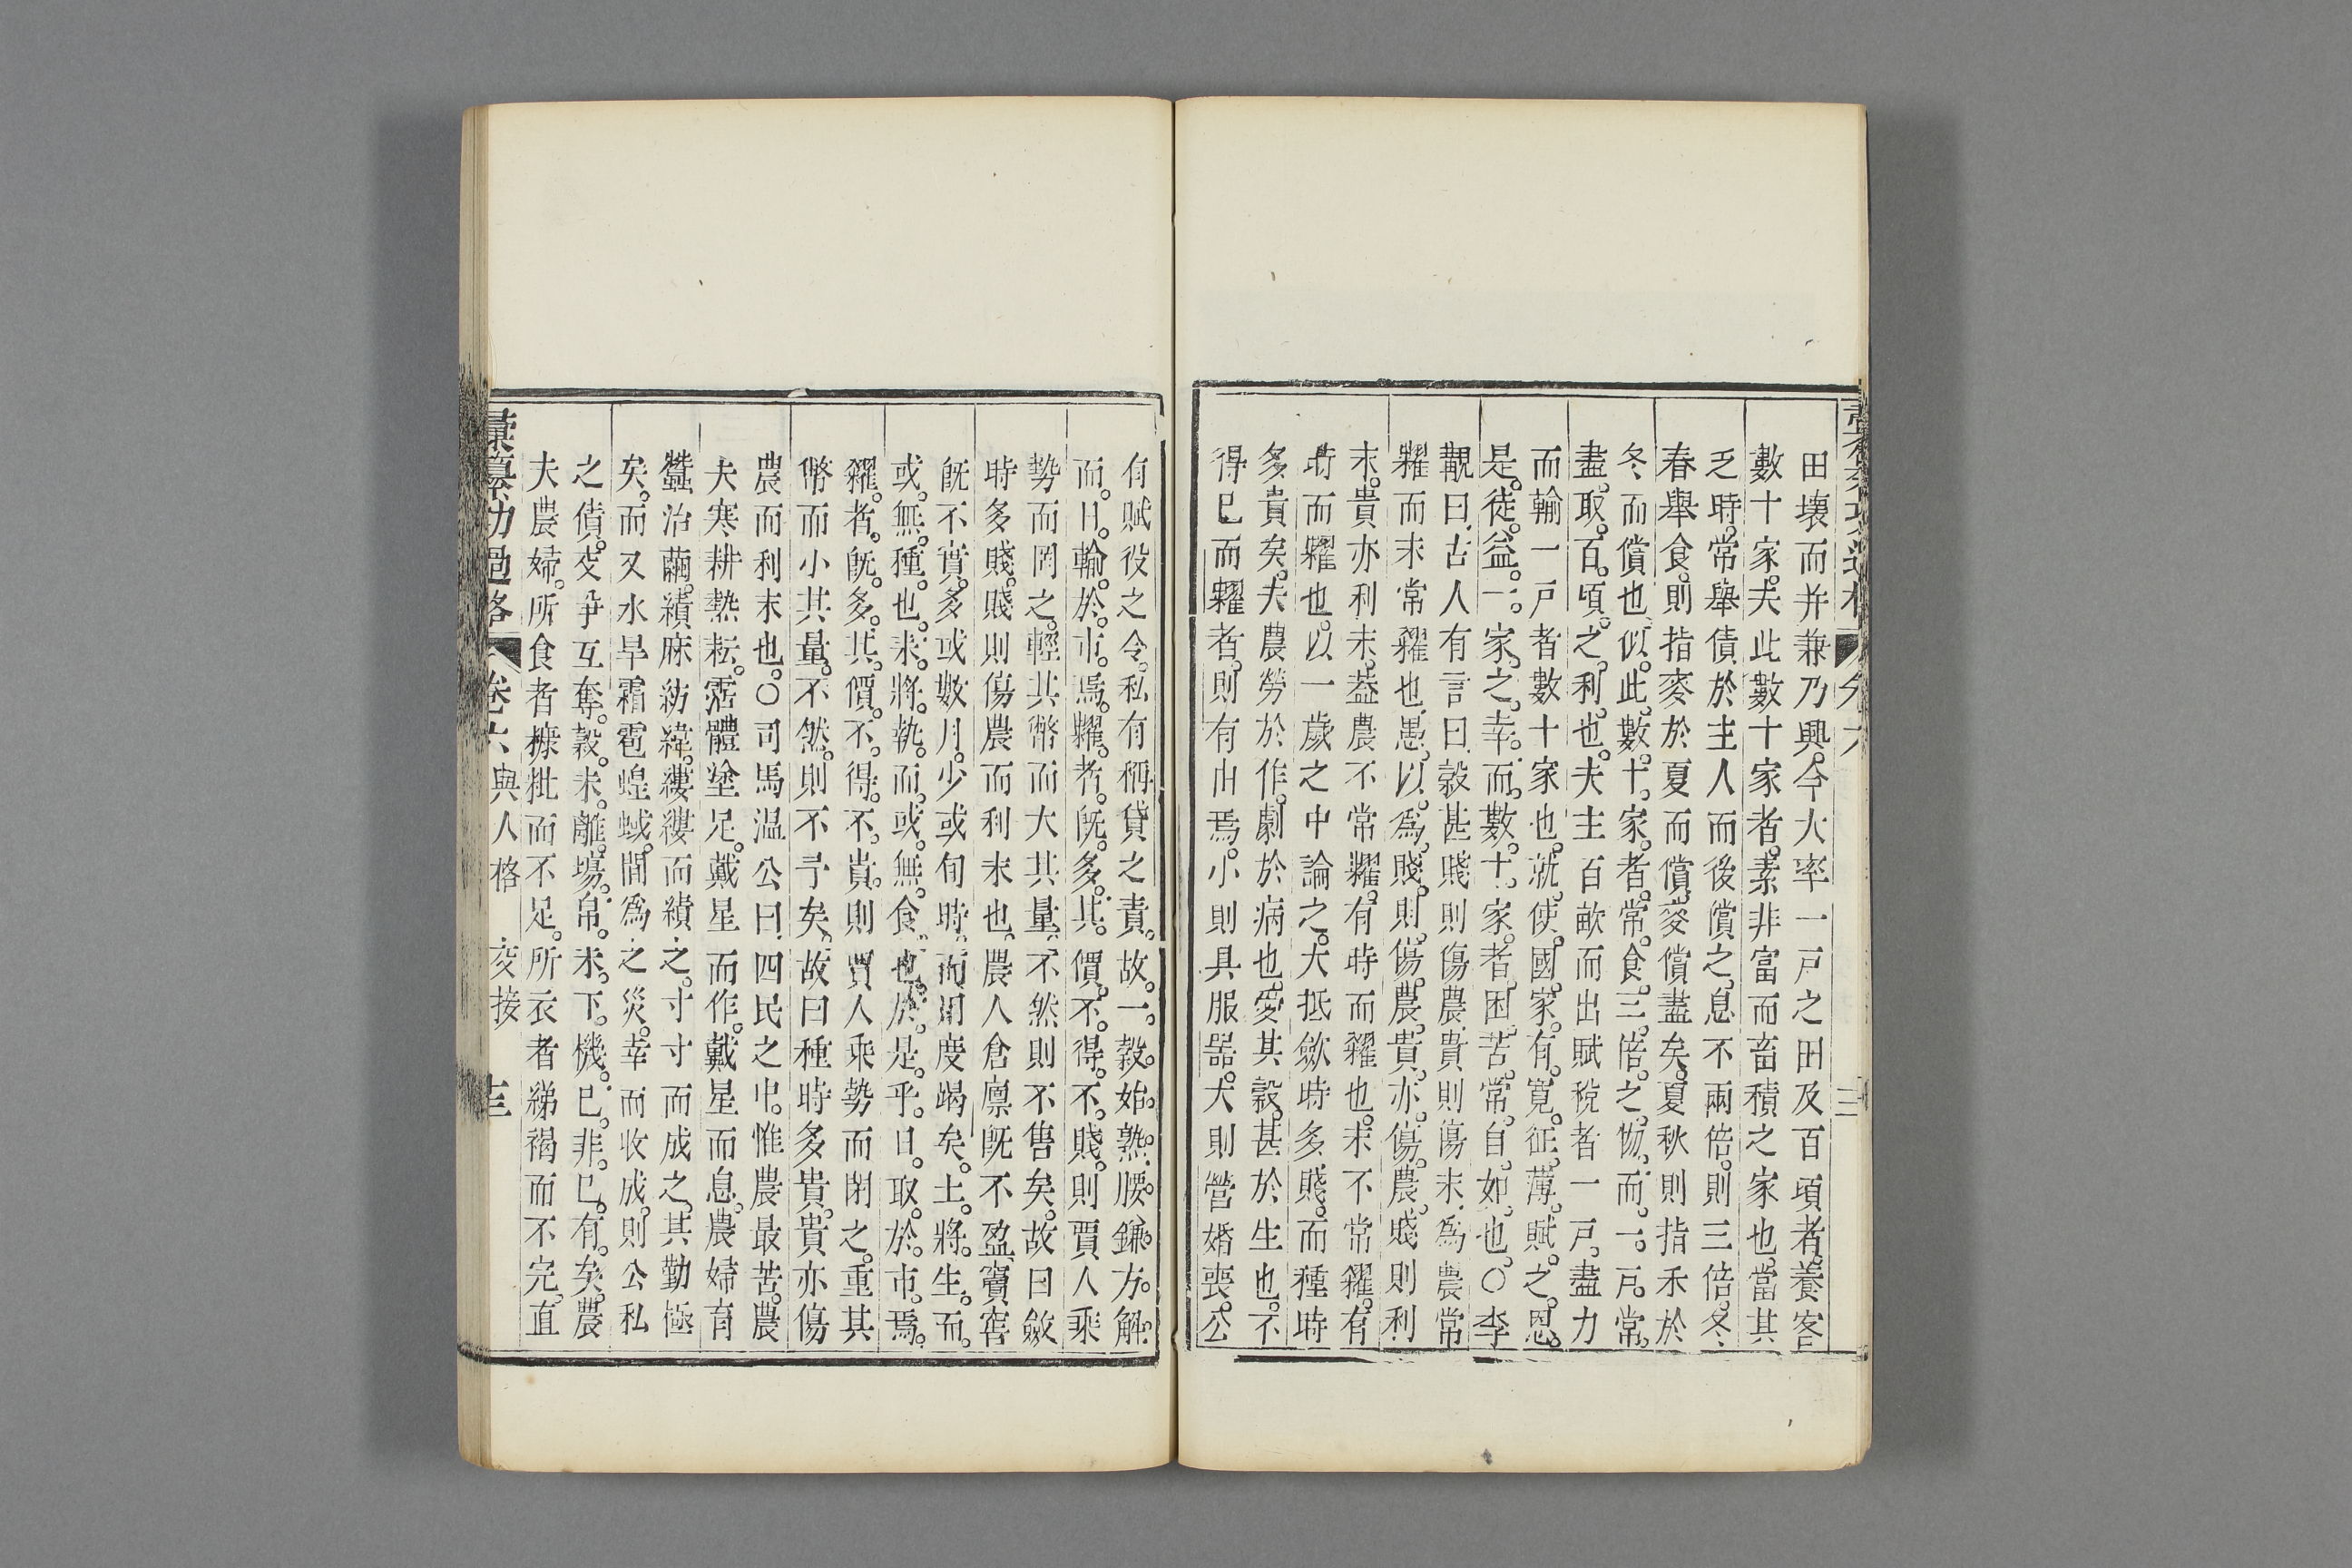 田壤而并兼乃興。今大率一戸之田及百頃者。養客
數十家。夫此數十家者。素非富而畜積之家也。當其
乏時。常舉債於主人而後償之。息不兩倍。則三倍。冬
春舉食。則指麥於夏而償。麥償盡矣。夏秋則指禾於
冬而償也。似。此。數。十。家。者。常。食。三。倍。之。物。而。一。戸。常。
盡。取。百。頃。之。利。也。夫主百畝而出賦稅者一戸。盡力
而輸一戸者數十家也。就。使。國。家。有。寛。征。薄。賦。之。恩。
是。徒。益。一。家。之。幸。而。數。十。家。者。困。苦。常。自。如。也。○李
覯曰。古人有言曰。穀甚賤則傷農。貴則傷末。爲農常
糶而末常糴也。愚。以。爲。賤。則。傷。農。貴。亦。傷。農。賤則利
末。貴亦利末。葢農不常糶。有時而糴也。末不常糴。有
時而糶也。以一歲之中論之。大抵斂時多賤。而種時
多貴矣。夫農勞於作。劇於病也。愛其穀。甚於生也。不
得已而糶者。則有由焉。小則具服器。大則營婚喪。公
有賦役之令。私有稱貸之責。故。一。穀。始。熟。腰。鎌。方。解。
而。日。輸。於。市。焉。糶。者。旣。多。其。價。不。得。不。賤。則賈人乘
勢而罔之。輕其幣而大其量。不然則不售矣。故曰斂
時多賤。賤則傷農而利末也。農人倉廩旣不盈。竇窖
旣不實。多或數月。少或旬時。而用度竭矣。土。將。生。而。
或。無。種。也。耒。將。執。而。或。無。食。也。於。是。乎。日。取。於。市。焉。
糴。者。旣。多。其。價。不。得。不。貴。則賈人乘勢而閉之。重其
幣而小其量。不然。則不予矣。故曰種時多貴。貴亦傷
農而利末也。○司馬温公曰。四民之中。惟農最苦。農
夫寒耕熱耘。霑體塗足。戴星而作。戴星而息。農婦育
蠶治繭。績麻紡緯。縷縷而績之。寸寸而成之。其勤極
矣。而又水旱霜雹蝗蜮。間爲之災。幸而收成。則公私
之債。交爭互奪。穀。未。離。場。帛。未。下。機。已。非。已。有。矣。農
夫農婦。所食者糠秕而不足。所衣者綈褐而不完。直
彙纂功過格 卷六 與人格 交接